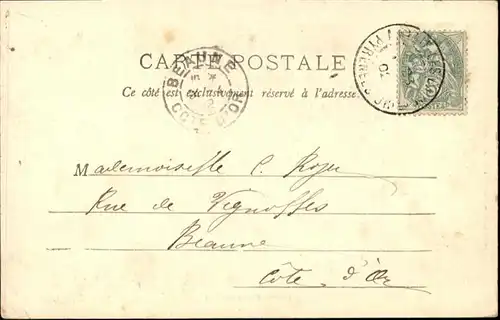 CARTE POSTALE
Ce côté est exclusivement réservé à l'adresse.
BEAUNE
CÔTE D'OR
Mademoiselle C. Royer
Rue de Vignolles
Beaune
Côte d'Or